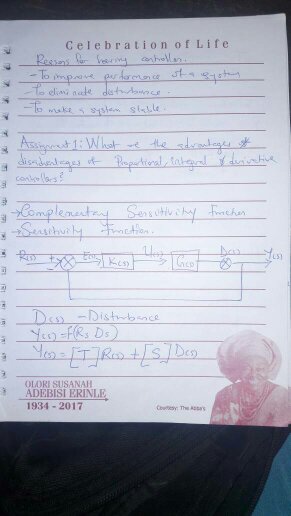 Celebration of Life
Reasons for having controller.
- To improve performance of a system
- To eliminate disturbance.
- To make a system stable.
Assignment 1: What are the advantages &
disadvantages of Proportional, integral & derivative
controllers?
→ Complementary Sensitivity Function
→ Sensitivity Function.
R(s) + E(s) K(s) U(s) G(s) D(s) Y(s)
-
D(s) - Disturbance
Y(s) = f(Rs Ds)
Y(s) = [T] R(s) + [S] D(s)
OLORI SUSANAH
ADEBISI ERINLE
1934 - 2017
Courtesy: The Abba's